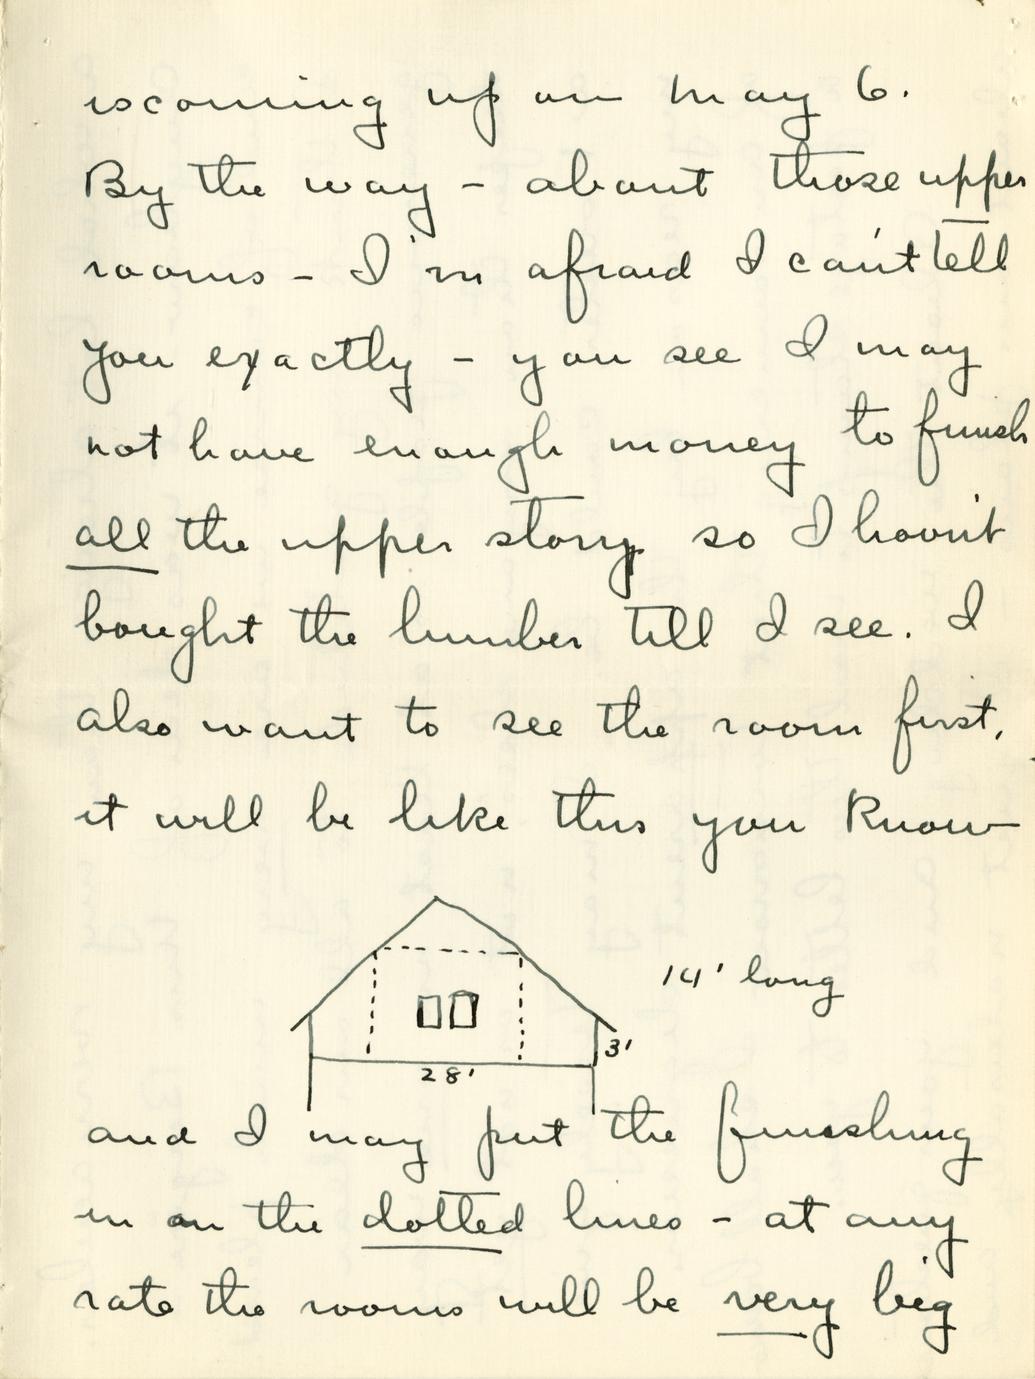 is coming up on May 6.
By the way - about those upper
rooms - I'm afraid I can't tell
you exactly - you see I may
not have enough money to finish
all the upper story so I havn't
bought the lumber till I see. I
also want to see the room first,
it will be like this you know
14' long
3'
28'
and I may put the finishing
in on the dotted lines - at any
rate the rooms will be very big